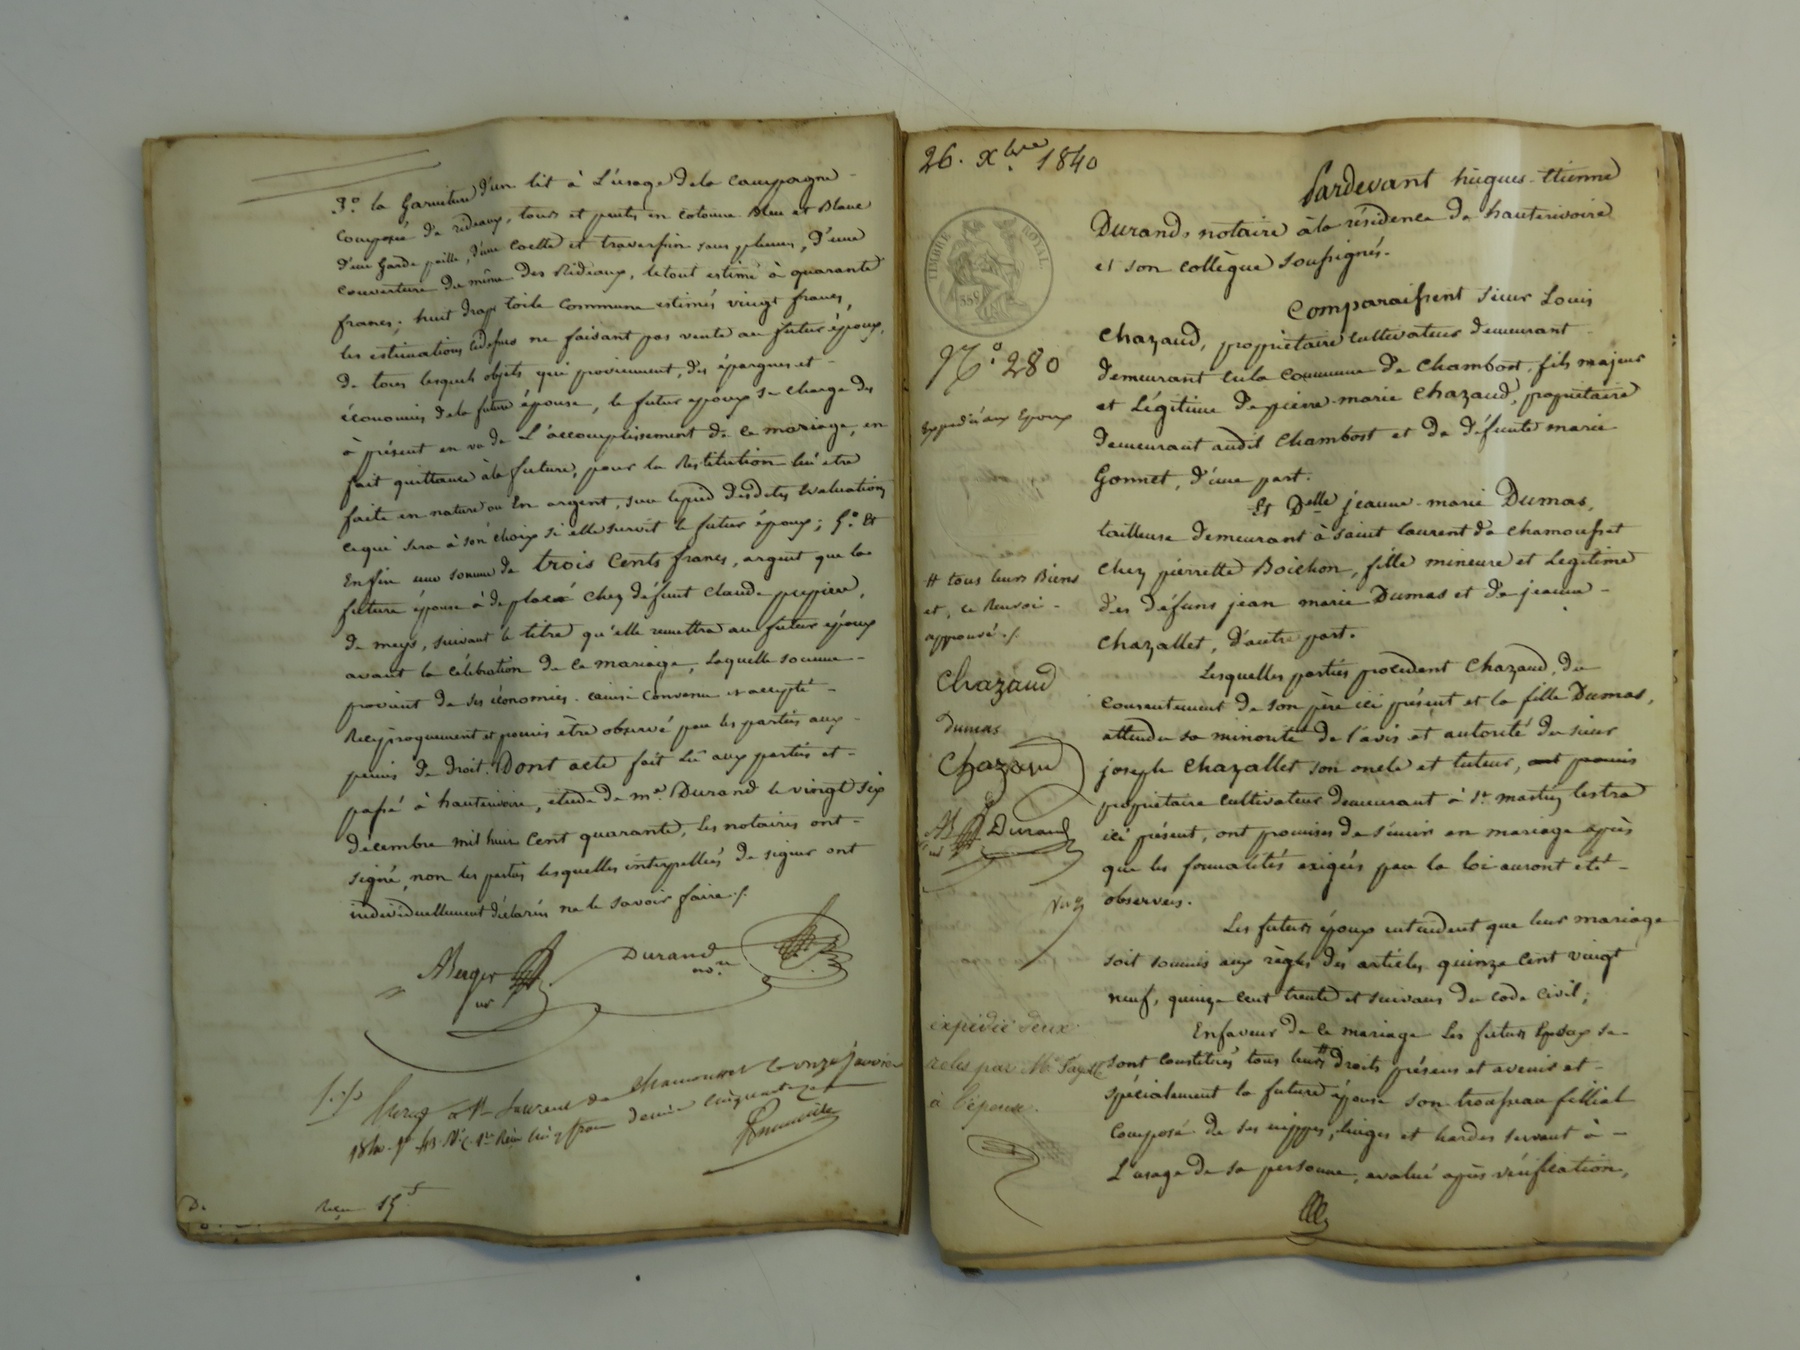 3.º la Garniture d'un lit à L'usage de la campagne
composée de rideaux, tours et pentes en cotonne Bleu et Blanc
d'une Garde paille, d'une coette et traversin sans plumes, d'une
couverture de même des Rideaux, le tout estimé à quarante
francs; huit draps toile commune estimés vingt francs,
les estimations cidessus ne faisant pas vente au futur époux,
de tous lesquels objets, qui proviennent, des épargnes et
économies de la future épouse, le futur epoux se charge dès
à présent en vu de L'accomplissement de ce mariage, en
fait quittance à la future, pour la Restitution lui etre
faite en nature ou En argent, sur le pied desdites Evaluations
ce qui sera à son choix si elle survit le futur époux; 5.º Et
Enfin une somme de trois Cents francs, argent que la
future épouse à de placé chez défunt Claude
de meys, suivant le titre qu'elle remettra au futur époux
avant la célébration de ce mariage, laquelle somme
provient de ses économies. ainsi convenu et accepté
Réciproquement et promis être observé par les parties aux
peines de droit. Dont acte fait Lû aux parties et
passé à hauterivoire, étude de me. Durand le vingt six
decembre mil huit Cent quarante, les notaires ont
signé, non les parties lesquelles interpellées de signer ont
individuellement déclarés ne le savoir faire ./.
Berger
Durand
nore
à St Laurent de Chamousset le onze janvier
Reçu 15f
26. Xbre 1840
TIMBRE ROYAL
Nº. 280
Expédié aux Epoux
# tous leurs Biens
et, ce Renvoi
approuvé ./.
Chazaud
Dumas
Chazaud
Durand
expédié deux
rôles par Me
à l'épouse.
Pardevant hugues-Etienne
Durand, notaire à la résidence de hauterivoire
et son collègue soussignés.
Comparaissent sieur Louis
Chazaud, propriétaire cultivateur demeurant
demeurant en la commune de Chambost, fils majeur
et Légitime de pierre-marie Chazaud, propriétaire
demeurant audit Chambost et de défunte marie
Gonnet, d'une part.
Et Delle jeanne-marie Dumas,
tailleuse demeurant à saint laurent de chamousset
chez pierrette Boichon, fille mineure et Legitime
des défuns jean marie Dumas et de jeanne
Chazallet, d'autre part.
Lesquelles parties procedent Chazaud, du
consentement de son père ici présent et la fille Dumas,
attendu sa minorité de l'avis et autorité du sieur
joseph Chazallet son oncle et tuteur, ont promis
propriétaire cultivateur demeurant à St. martin lestra
ici présent, ont promises de s'unir en mariage après
que les formalités exigées par la loi auront été
observées.
Les futurs époux entendent que leur mariage
soit soumis aux règles des articles quinze cent vingt
neuf, quinze cent trente et suivans du code civil;
En faveur de ce mariage les futurs Epoux se
sont constitués tous leurs # droits présens et avenir et
spécialement la future épouse son trousseau fillial
composé de ses nippes, linges et hardes servant à
L'usage de sa personne, evalué après vérification,